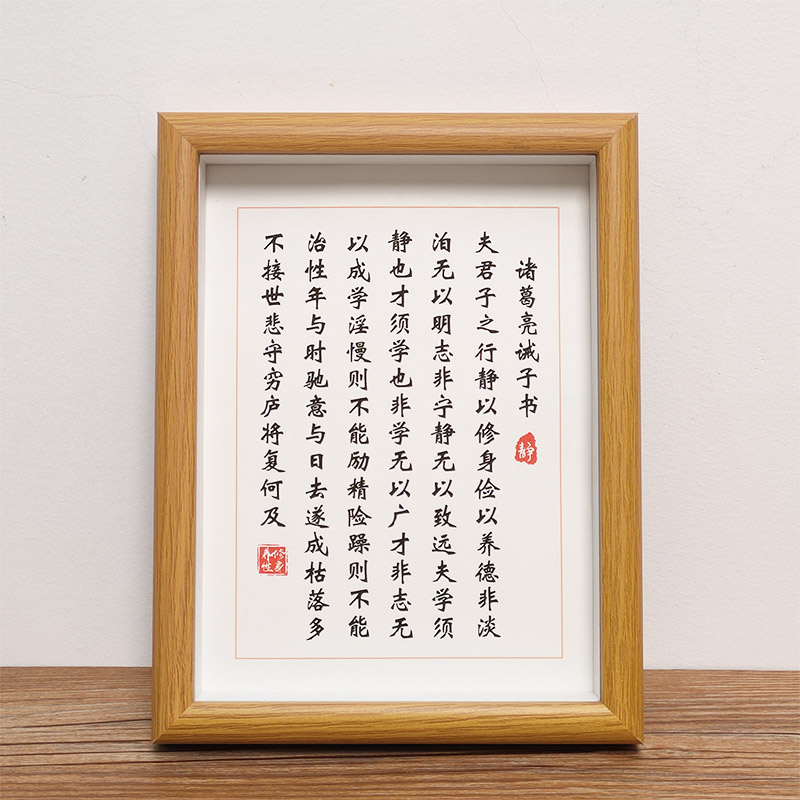 诸葛亮诫子书
静
夫君子之行静以修身俭以养德非淡
泊无以明志非宁静无以致远夫学须
静也才须学也非学无以广才非志无
以成学淫慢则不能励精险躁则不能
治性年与时驰意与日去遂成枯落多
不接世悲守穷庐将复何及
修身
养性